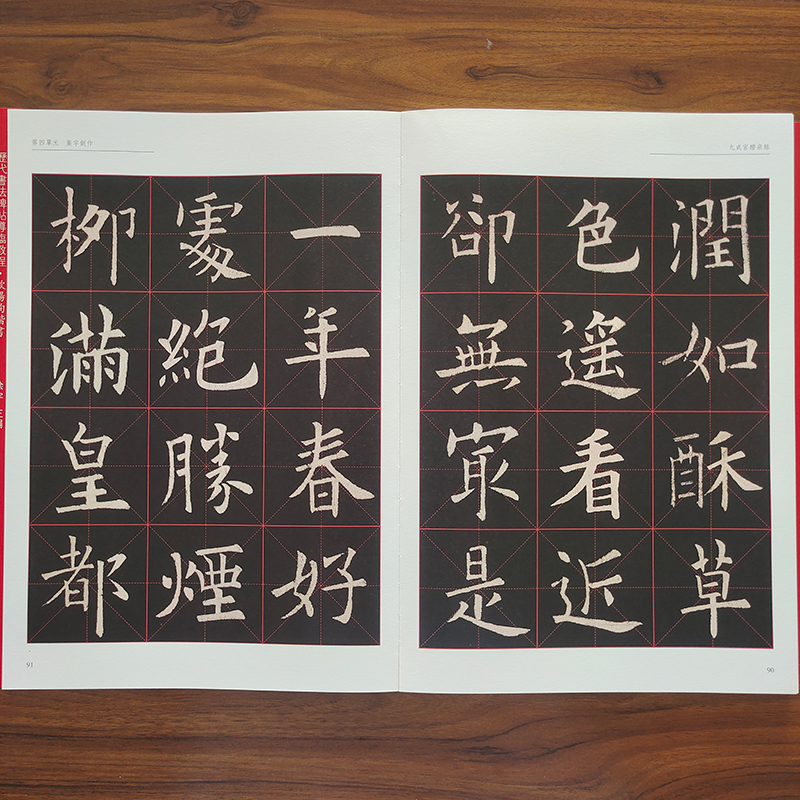 九成宮醴泉銘
潤如酥草
色遥看近
卻無㝡是
90
第四單元 集字創作
一年春好
處絶勝煙
柳滿皇都
91
歷代書法碑帖導臨教程·歐陽詢楷書
主編